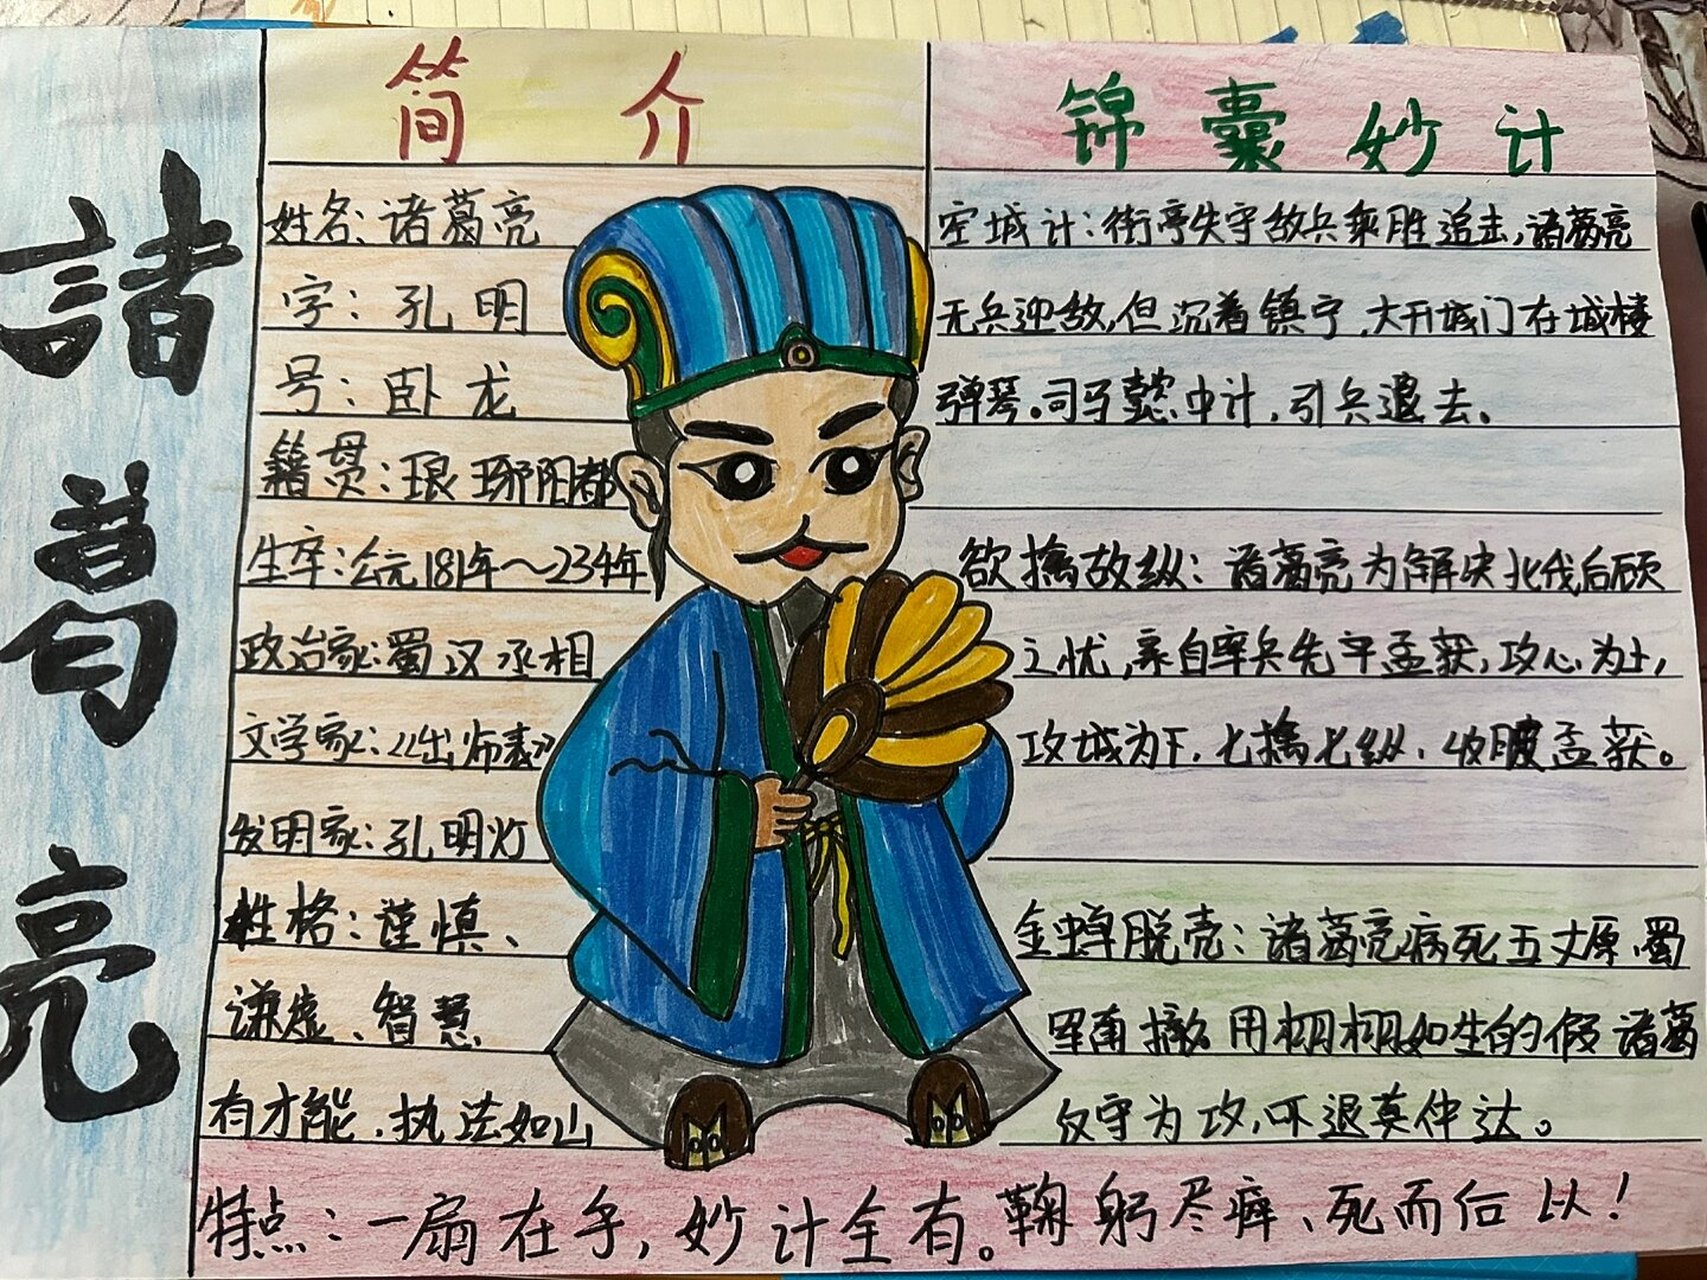 諸葛亮
简介
姓名：诸葛亮
字：孔明
号：卧龙
籍贯：琅琊阳都
生卒：公元181年～234年
政治家：蜀汉丞相
文学家：《出师表》
发明家：孔明灯
性格：谨慎、
谦虚、智慧
有才能、执法如山
锦囊妙计
空城计：街亭失守敌兵乘胜追击，诸葛亮
无兵迎敌，但沉着镇宁，大开城门在城楼
弹琴。司马懿中计，引兵退去。
欲擒故纵：诸葛亮为解决北伐后顾
之忧，亲自率兵先平孟获，攻心为上，
攻城为下，七擒七纵，收服孟获。
金蝉脱壳：诸葛亮病死五丈原，蜀
军南撤 用栩栩如生的假诸葛
仅守为攻，吓退真仲达。
特点：一扇在手，妙计全有。鞠躬尽瘁、死而后以！